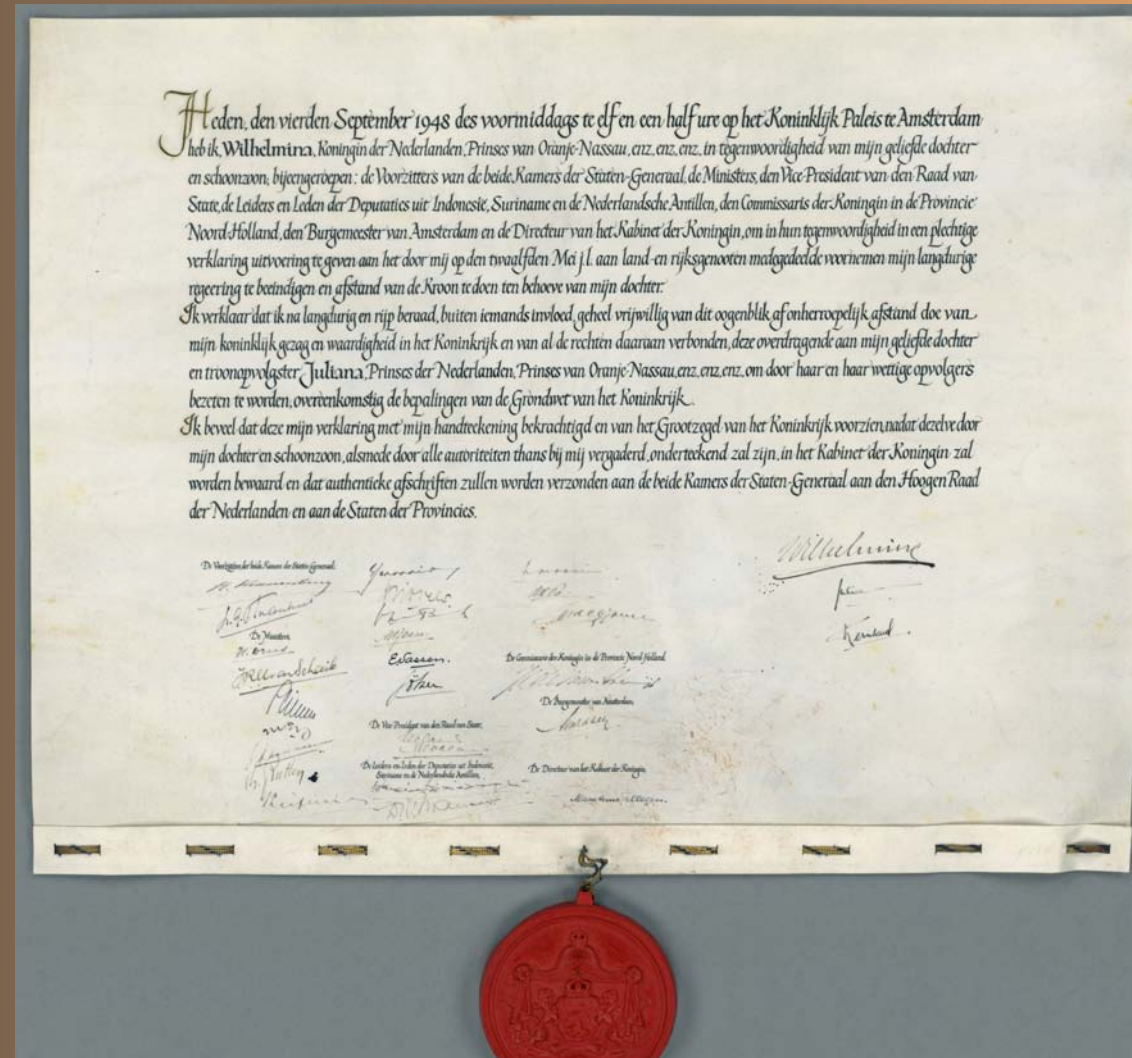 Heden, den vierden September 1948 des voormiddags te elf en een half ure op het Koninklijk Paleis te Amsterdam
heb ik, Wilhelmina, Koningin der Nederlanden, Prinses van Oranje-Nassau, enz. enz. enz. in tegenwoordigheid van mijn geliefde dochter
en schoonzoon, bijeengeroepen: de Voorzitters van de beide Kamers der Staten-Generaal, de Ministers, den Vice-President van den Raad van
State, de Leiders en Leden der Deputaties uit Indonesië, Suriname en de Nederlandsche Antillen, den Commissaris der Koningin in de Provincie
Noord-Holland, den Burgemeester van Amsterdam en de Directeur van het Kabinet der Koningin, om in hun tegenwoordigheid in een plechtige
verklaring uitvoering te geven aan het door mij op den twaalfden Mei j.l. aan land- en rijksgenooten medegedeelde voornemen mijn langdurige
regeering te beëindigen en afstand van de Kroon te doen ten behoeve van mijn dochter.
Ik verklaar dat ik na langdurig en rijp beraad, buiten iemands invloed, geheel vrijwillig van dit oogenblik af onherroepelijk afstand doe van
mijn koninklijk gezag en waardigheid in het Koninkrijk en van al de rechten daaraan verbonden, deze overdragende aan mijn geliefde dochter
en troonopvolgster, Juliana, Prinses der Nederlanden, Prinses van Oranje-Nassau, enz. enz. enz. om door haar en haar wettige opvolgers
bezeten te worden, overeenkomstig de bepalingen van de Grondwet van het Koninkrijk.
Ik beveel dat deze mijn verklaring met mijn handteekening bekrachtigd en van het Grootzegel van het Koninkrijk voorzien, nadat dezelve door
mijn dochter en schoonzoon, alsmede door alle autoriteiten thans bij mij vergaderd, onderteekend zal zijn, in het Kabinet der Koningin zal
worden bewaard en dat authentieke afschriften zullen worden verzonden aan de beide Kamers der Staten-Generaal aan den Hoogen Raad
der Nederlanden en aan de Staten der Provincies.
Wilhelmina
De Voorzitters der beide Kamers der Staten-Generaal,
De Ministers,
De Commissaris der Koningin in de Provincie Noord-Holland,
De Burgemeester van Amsterdam,
De Vice President van den Raad van State,
De Leiders en Leden der Deputaties uit Indonesië,
Suriname en de Nederlandsche Antillen,
De Directeur van het Kabinet der Koningin,